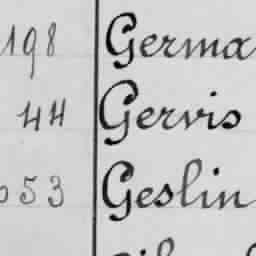 198 Germa
44 Gervis
53 Geslin